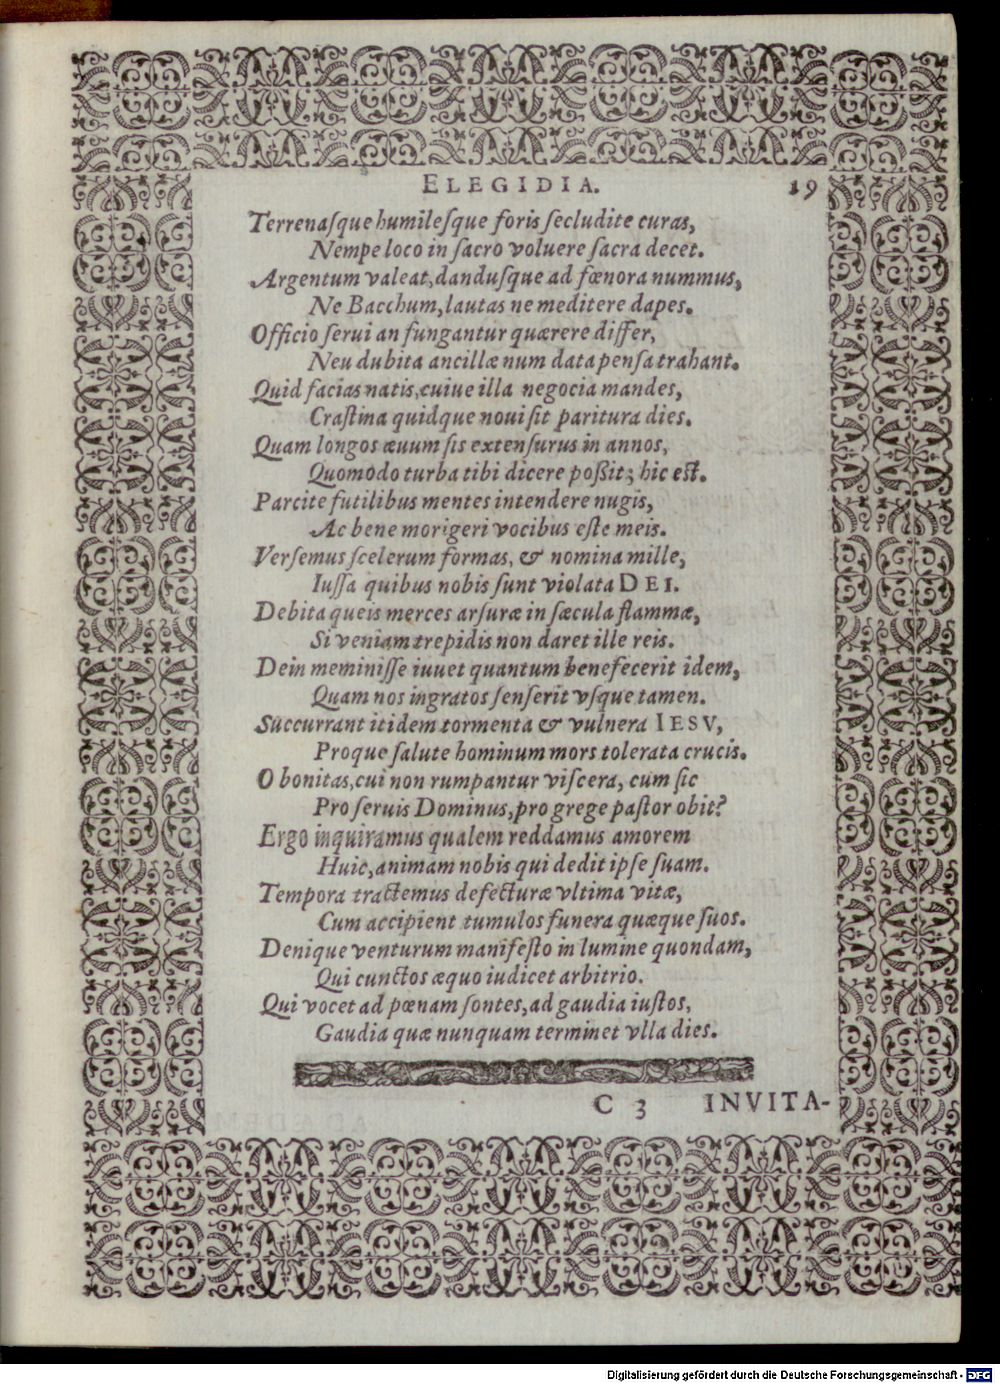 ELEGIDIA. 19
Terrenasque humilesque foris secludite curas,
Nempe loco in sacro voluere sacra decet.
Argentum valeat, dandusque ad fœnora nummus,
Ne Bacchum, lautas ne meditere dapes.
Officio serui an fungantur quærere differ,
Neu dubita ancillæ num data pensa trahant.
Quid facias natis, cuiue illa negocia mandes,
Crastina quidque noui sit paritura dies.
Quam longos æuum sis extensurus in annos,
Quomodo turba tibi dicere poßit; hic est.
Parcite futilibus mentes intendere nugis,
Ac bene morigeri vocibus este meis.
Versemus scelerum formas, & nomina mille,
Iussa quibus nobis sunt violata DEI.
Debita queis merces arsuræ in sæcula flammæ,
Si veniam trepidis non daret ille reis.
Dein meminisse iuuet quantum benefecerit idem,
Quam nos ingratos senserit vsque tamen.
Succurrant itidem tormenta & vulnera IESV,
Proque salute hominum mors tolerata crucis.
O bonitas, cui non rumpantur viscera, cum sic
Pro seruis Dominus, pro grege pastor obit?
Ergo inquiramus qualem reddamus amorem
Huic, animam nobis qui dedit ipse suam.
Tempora tractemus defecturæ vltima vitæ,
Cum accipient tumulos funera quæque suos.
Denique venturum manifesto in lumine quondam,
Qui cunctos æquo iudicet arbitrio.
Qui vocet ad pœnam sontes, ad gaudia iustos,
Gaudia quæ nunquam terminet vlla dies.
C 3 INVITA-
Digitalisierung gefördert durch die Deutsche Forschungsgemeinschaft - DFG